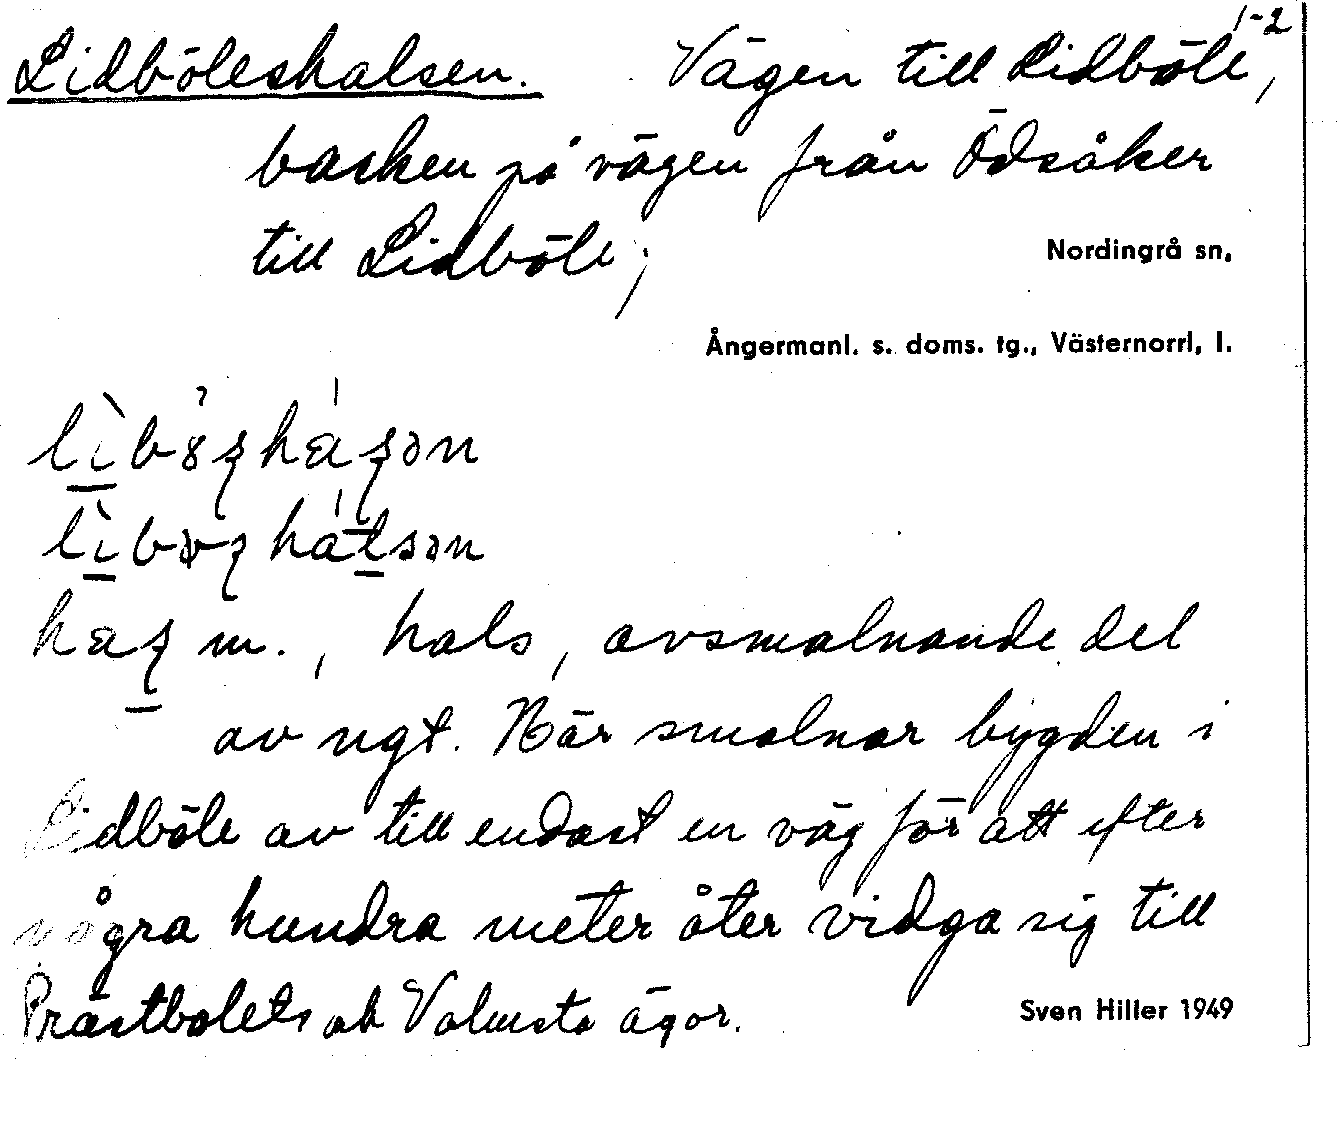 1-2
Lidböleshalsen. Vägen till Lidböle,
backen på vägen från Ödsåker
till Lidböle;
Nordingrå sn,
Ångermanl. s. doms. tg., Västernorrl, l.
hals, avsmalnande del
av ngt. Här smalnar bygden i
Lidböle av till endast en väg för att efter
några hundra meter åter vidga sig till
Prästbolets och Valmsta ägor.
Sven Hiller 1949